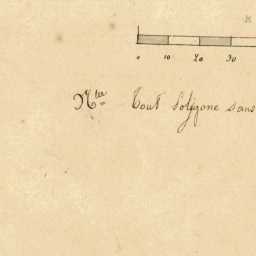 0 10 20 30
Nta Tout Poligone sans